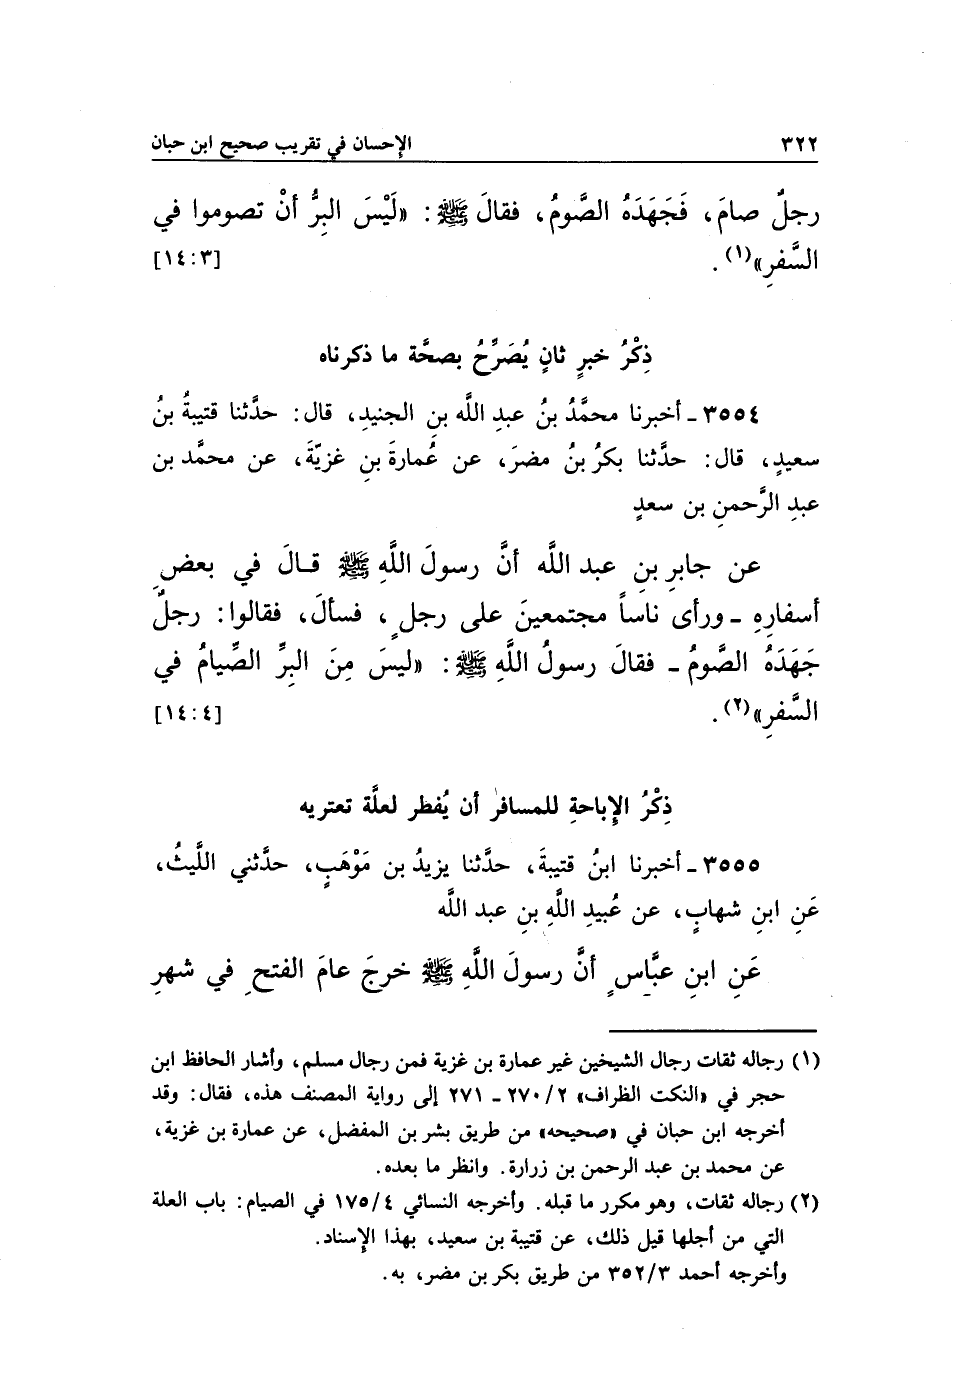 ٣٢٢ الإحسان في تقريب صحيح ابن حبان
رجلٌ صامَ، فَجَهَدَهُ الصَّومُ، فقالَ ﷺ: «لَيْسَ البِرُّ أنْ تصوموا في
السَّفرِ»(١). [٣:١٤]
ذِكْرُ خبرٍ ثانٍ يُصَرِّحُ بصحَّة ما ذكرناه
٣٥٥٤ ـ أخبرنا محمَّدُ بنُ عبدِ اللَّه بنِ الجنيدِ، قال: حدَّثنا قتيبةُ بنُ
سعيدٍ، قال: حدَّثنا بكرُ بنُ مضرَ، عن عُمارةَ بنِ غزيّةَ، عن محمَّد بن
عبدِ الرَّحمنِ بن سعدٍ
عن جابرِ بنِ عبد اللَّه أنَّ رسولَ اللَّهِ ﷺ قـالَ في بعضِ
أسفارِهِ ـ ورأى ناساً مجتمعينَ على رجلٍ، فسألَ، فقالوا: رجلٌ
جَهَدَهُ الصَّومُ ـ فقالَ رسولُ اللَّهِ ﷺ: «ليسَ مِنَ البِرِّ الصِّيامُ في
السَّفرِ»(٢). [٤:١٤]
ذِكْرُ الإباحةِ للمسافر أن يُفطر لعلَّة تعتريه
٣٥٥٥ ـ أخبرنا ابنُ قتيبةَ، حدَّثنا يزيدُ بن مَوْهَبٍ، حدَّثني اللَّيثُ،
عَنِ ابنِ شهابٍ، عن عُبيدِ اللَّهِ بنِ عبد اللَّه
عَنِ ابنِ عبَّاسٍ أنَّ رسولَ اللَّهِ ﷺ خرجَ عامَ الفتحِ في شهرِ
(١) رجاله ثقات رجال الشيخين غير عمارة بن غزية فمن رجال مسلم، وأشار الحافظ ابن
حجر في «النكت الظراف» ٢/ ٢٧٠ ـ ٢٧١ إلى رواية المصنف هذه، فقال: وقد
أخرجه ابن حبان في «صحيحه» من طريق بشر بن المفضل، عن عمارة بن غزية،
عن محمد بن عبد الرحمن بن زرارة. وانظر ما بعده.
(٢) رجاله ثقات، وهو مكرر ما قبله. وأخرجه النسائي ٤/ ١٧٥ في الصيام: باب العلة
التي من أجلها قيل ذلك، عن قتيبة بن سعيد، بهذا الإسناد.
وأخرجه أحمد ٣/ ٣٥٢ من طريق بكر بن مضر، به.